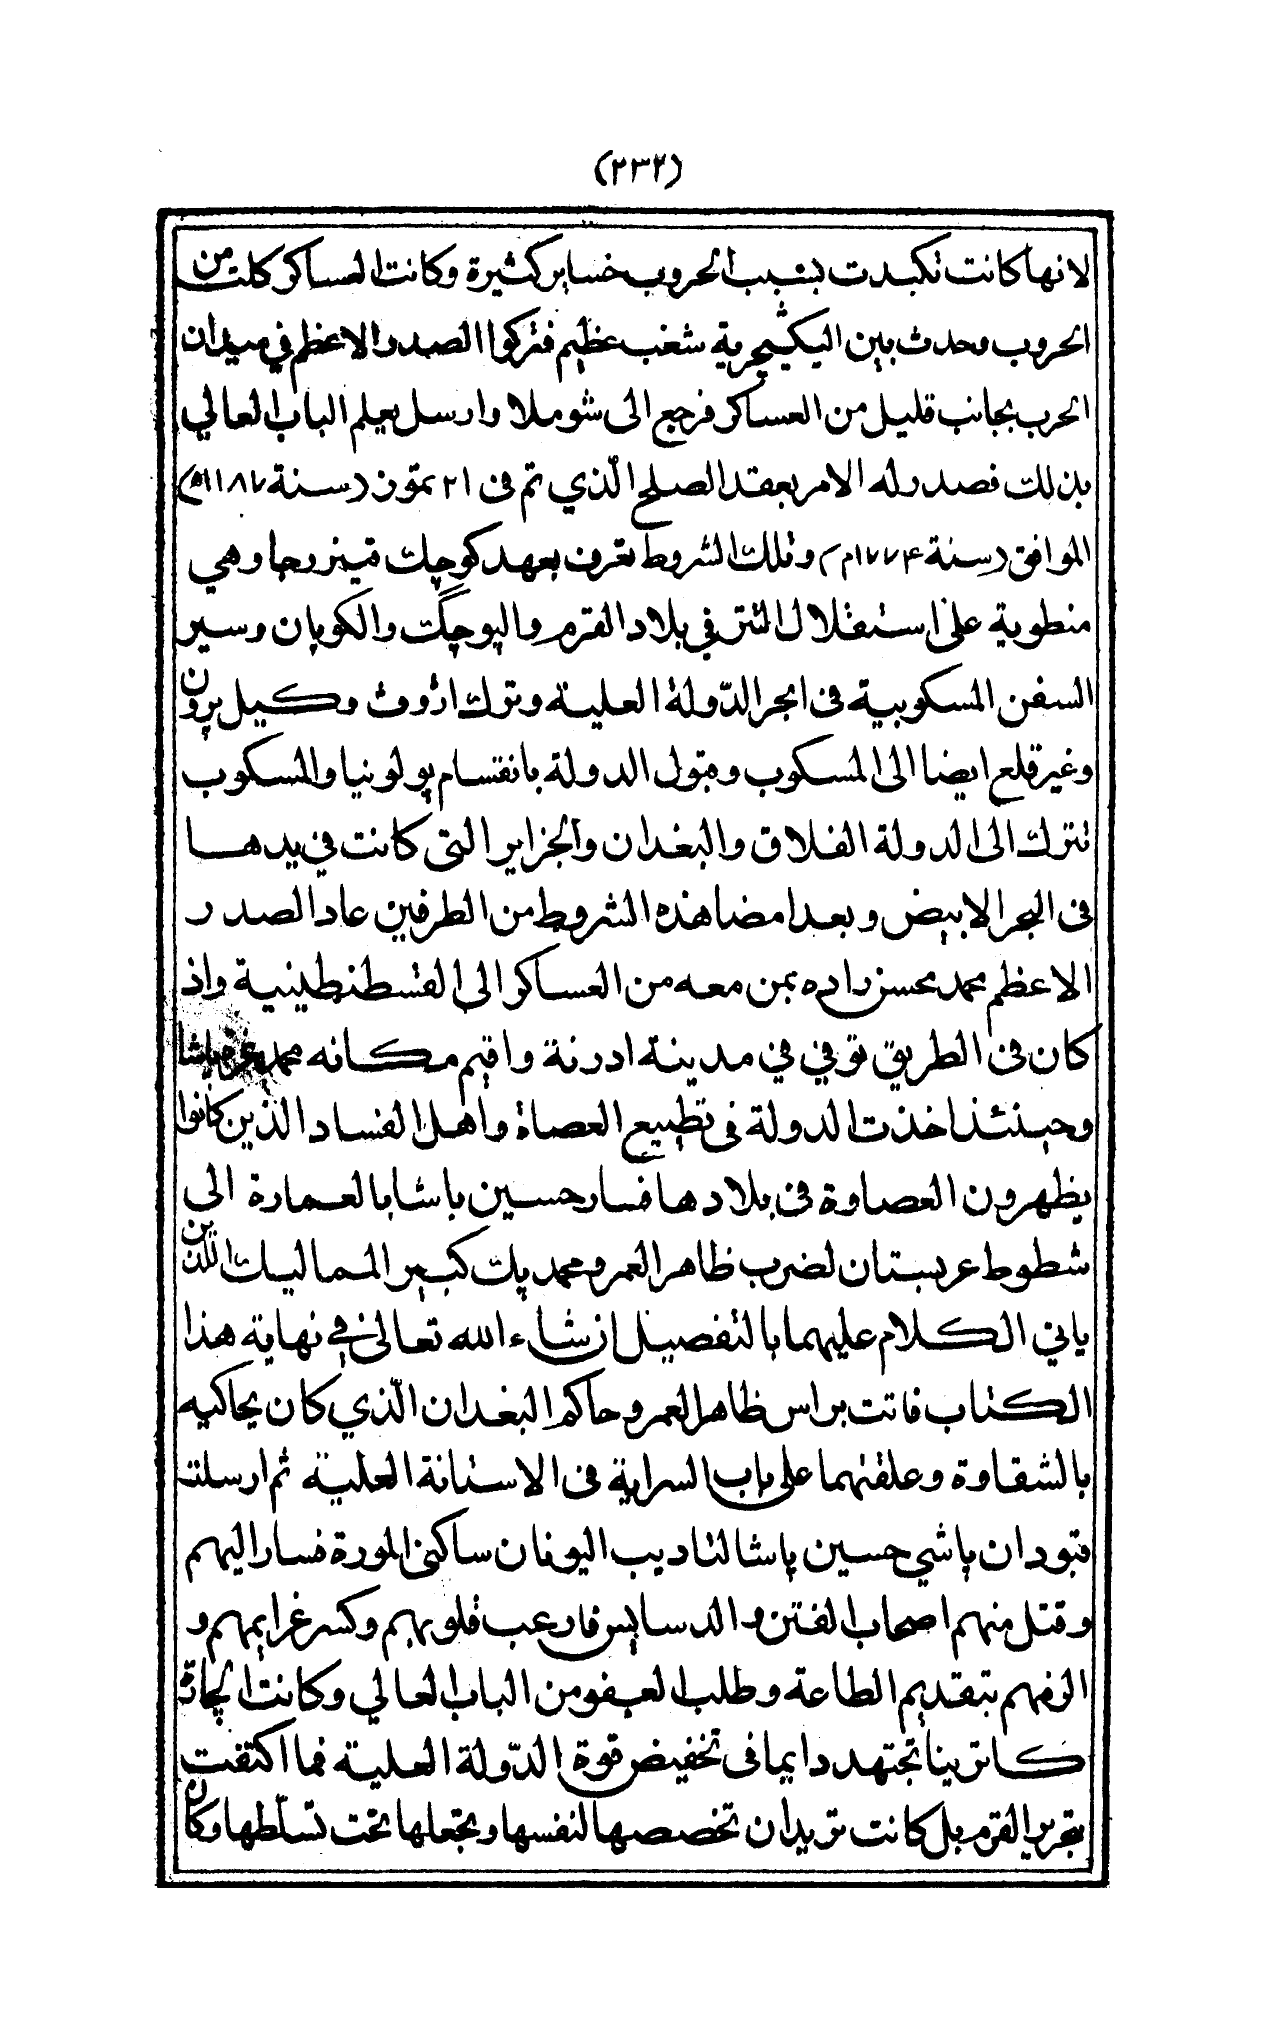 (٢٣٢)
لانها كانت تكبدت بسبب الحروب خساير كثيرة وكانت العساكر كلت من
الحروب وحدث بين اليكيچرية شغب عظيم فتركوا الصدر الاعظم في ميدان
الحرب بجانب قليل من العساكر فرجع الى شوملا وارسل يعلم الباب العالي
بذلك فصدر له الامر بعقد الصلح الّذي تم فى ٢١ تموز (سنة ١١٨٧ه)
الموافق (سنة ١٧٧٤م) وتلك الشروط تعرف بعهد كوچك قينرجا وهي
منطوية على استقلال التتر في بلاد القرم واليوجگت والكوبان وسير
السفن المسكوبية فى ابحر الدّولة العلية وترك ازوف وكيل برون
وغير قلع ايضا الى المسكوب وقبول الدولة بانقسام پولونيا والمسكوب
تترك الى الدولة الفلاق والبغدان والجزاير التى كانت في يدها
فى البحر الابيض وبعد امضا هذه الشروط من الطرفين عاد الصدر
الاعظم محمد محسن زاده بمن معه من العساكر الى القسطنطينية واذ
كان فى الطريق توفي في مدينة ادرنة واقيم مكانه محمد عزه پاشا
وحينئذ اخذت الدولة فى تطبيع العصاة واهل الفساد الذين كانوا
يظهرون العصاوة فى بلادها فسار حسين باشا بالعمارة الى
شطوط عربستان لضرب ظاهر العمر ومحمد بك كبير المماليك اللذين
ياتي الكلام عليهما بالتفصيل ان شاء الله تعالى في نهاية هذا
الكتاب فاتت براس ظاهر العمر وحاكم البغدان الّذي كان يحاكيه
بالشقاوة وعلقتهما على باب السراية فى الاستانة العلية ثم ارسلت
قبودان پاشي حسين پاشا لتاديب اليونان ساكنى المورة فسار اليهم
وقتل منهم اصحاب الفتن والدسايس فارعب قلوبهم وكسر عزايمهم و
الزمهم بتقديم الطاعة وطلب العفو من الباب العالي وكانت الچارة
كاترينا تجتهد دايما فى تخفيض قوة الدّولة العلية فما اكتفت
بتحرير القرم بل كانت تريد ان تخصصها لنفسها وتجعلها تحت تسلّطها وكان